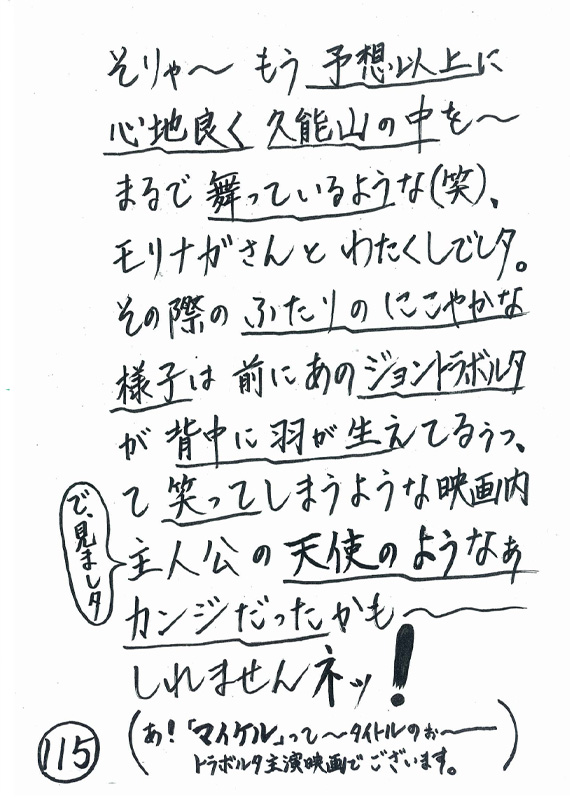 そりゃ〜 もう 予想以上に
心地良く 久能山の中を〜
まるで 舞っているような(笑)、
モリナガさんと わたくしでしタ。
その際の ふたりの にこやかな
様子は 前に あの ジョントラボルタ
が 背中に 羽が 生えてるぅっ、
て 笑ってしまうような 映画内
主人公の 天使のようなぁ
カンジだったかも〜
しれませんネッ!
で、見ましタ
(あ!「マイケル」って〜タイトルのぉ〜
トラボルタ主演映画でございます。)
115